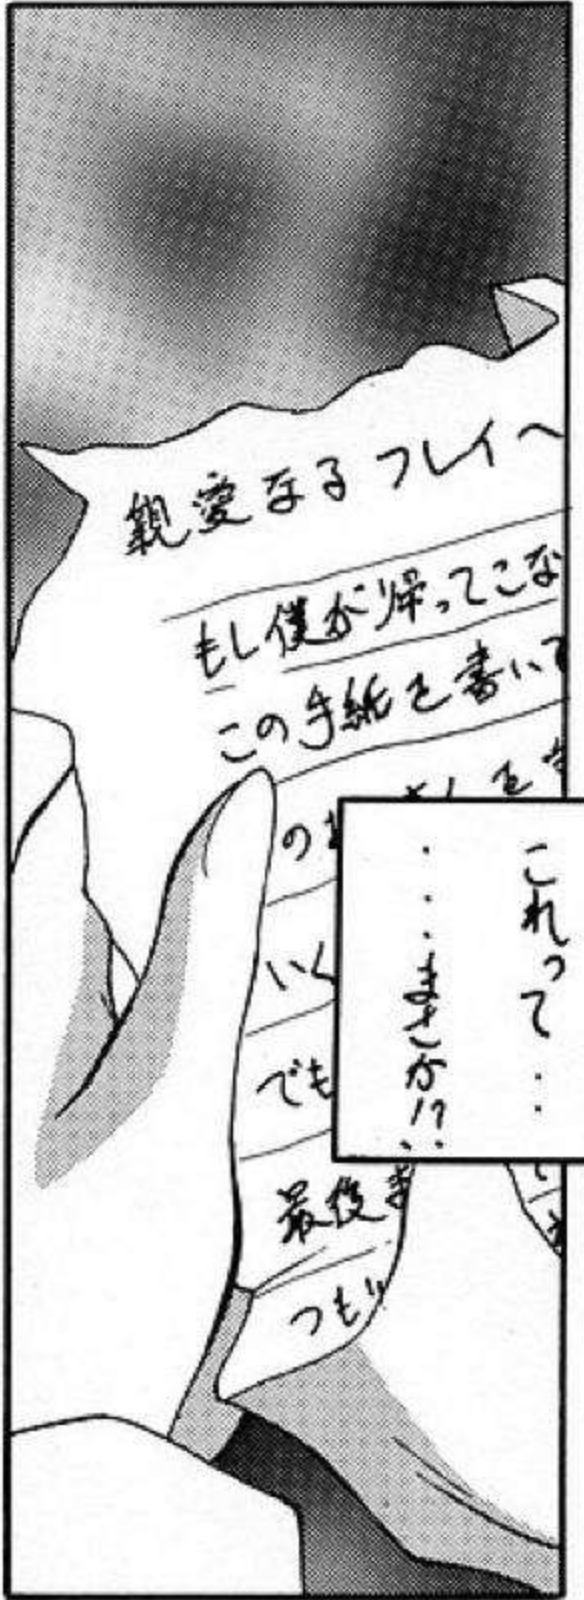 親愛なるフレイへ
もし僕が帰ってこな
この手紙を書いて
の
を
いく
でも
最後ま
つもり
これって・・
・・・まさか!?